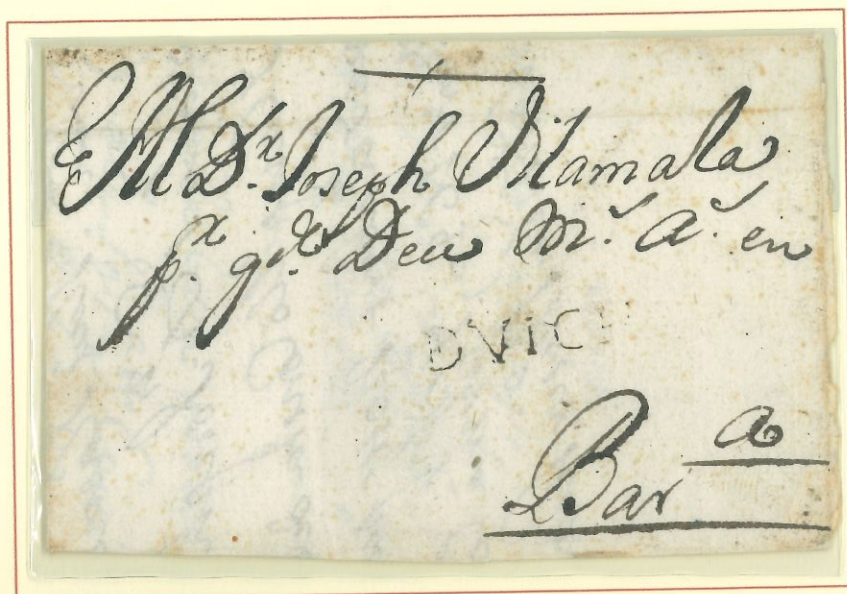 Dr. Joseph Vilamala
pr. gde. Deu Ms. As. en
DVICH
Bar a